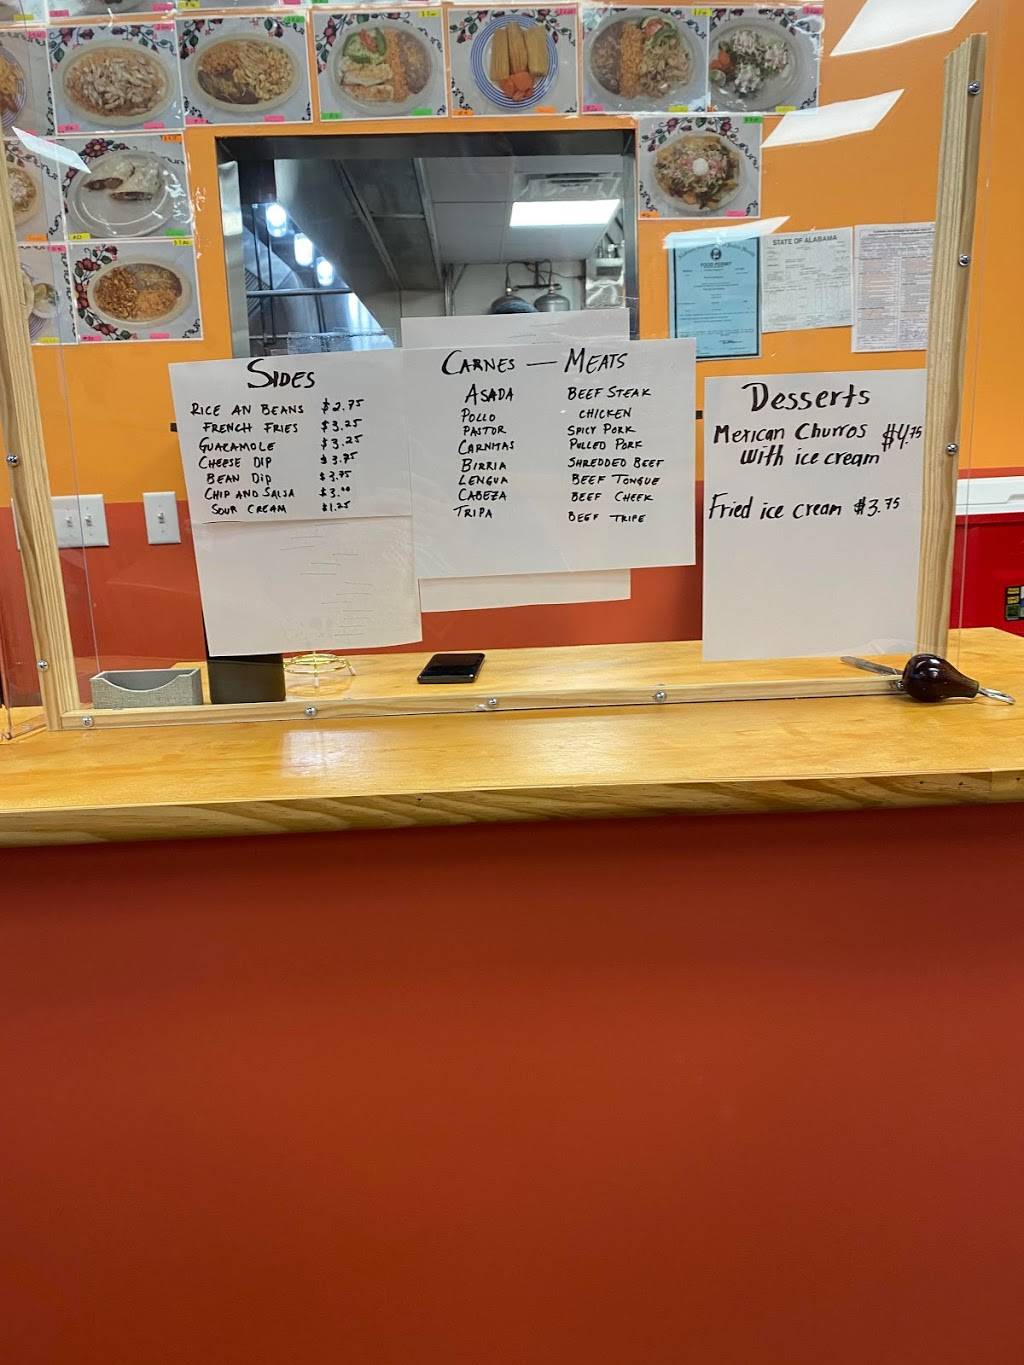 STATE OF ALABAMA
FOOD PERMIT
SIDES
RICE AN BEANS $2.75
FRENCH FRIES $3.25
GUACAMOLE $3.25
CHEESE DIP $3.75
BEAN DIP $3.75
CHIP AND SALSA $3.00
SOUR CREAM $1.25
CARNES — MEATS
ASADA BEEF STEAK
POLLO CHICKEN
PASTOR SPICY PORK
CARNITAS PULLED PORK
BIRRIA SHREDDED BEEF
LENGUA BEEF TONGUE
CABEZA BEEF CHEEK
TRIPA BEEF TRIPE
Desserts
Mexican Churros $4.75
with ice cream
Fried ice cream $3.75